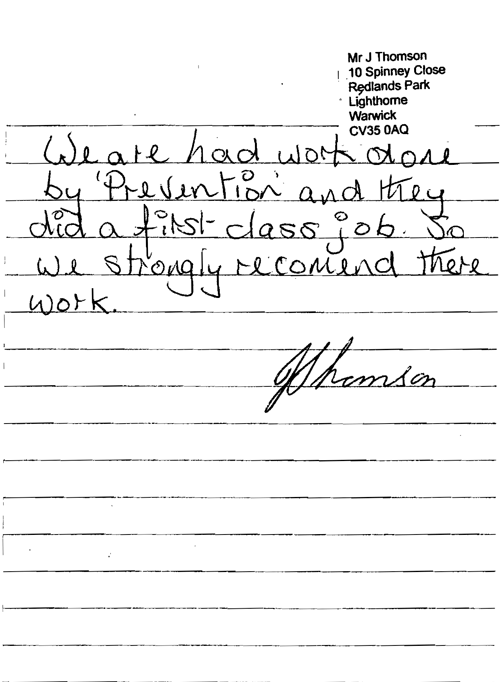 Mr J Thomson
10 Spinney Close
Redlands Park
Lighthorne
Warwick
CV35 0AQ
We are had work done
by 'Prevention' and they
did a first-class job. So
we strongly recomend there
work.
JThomson